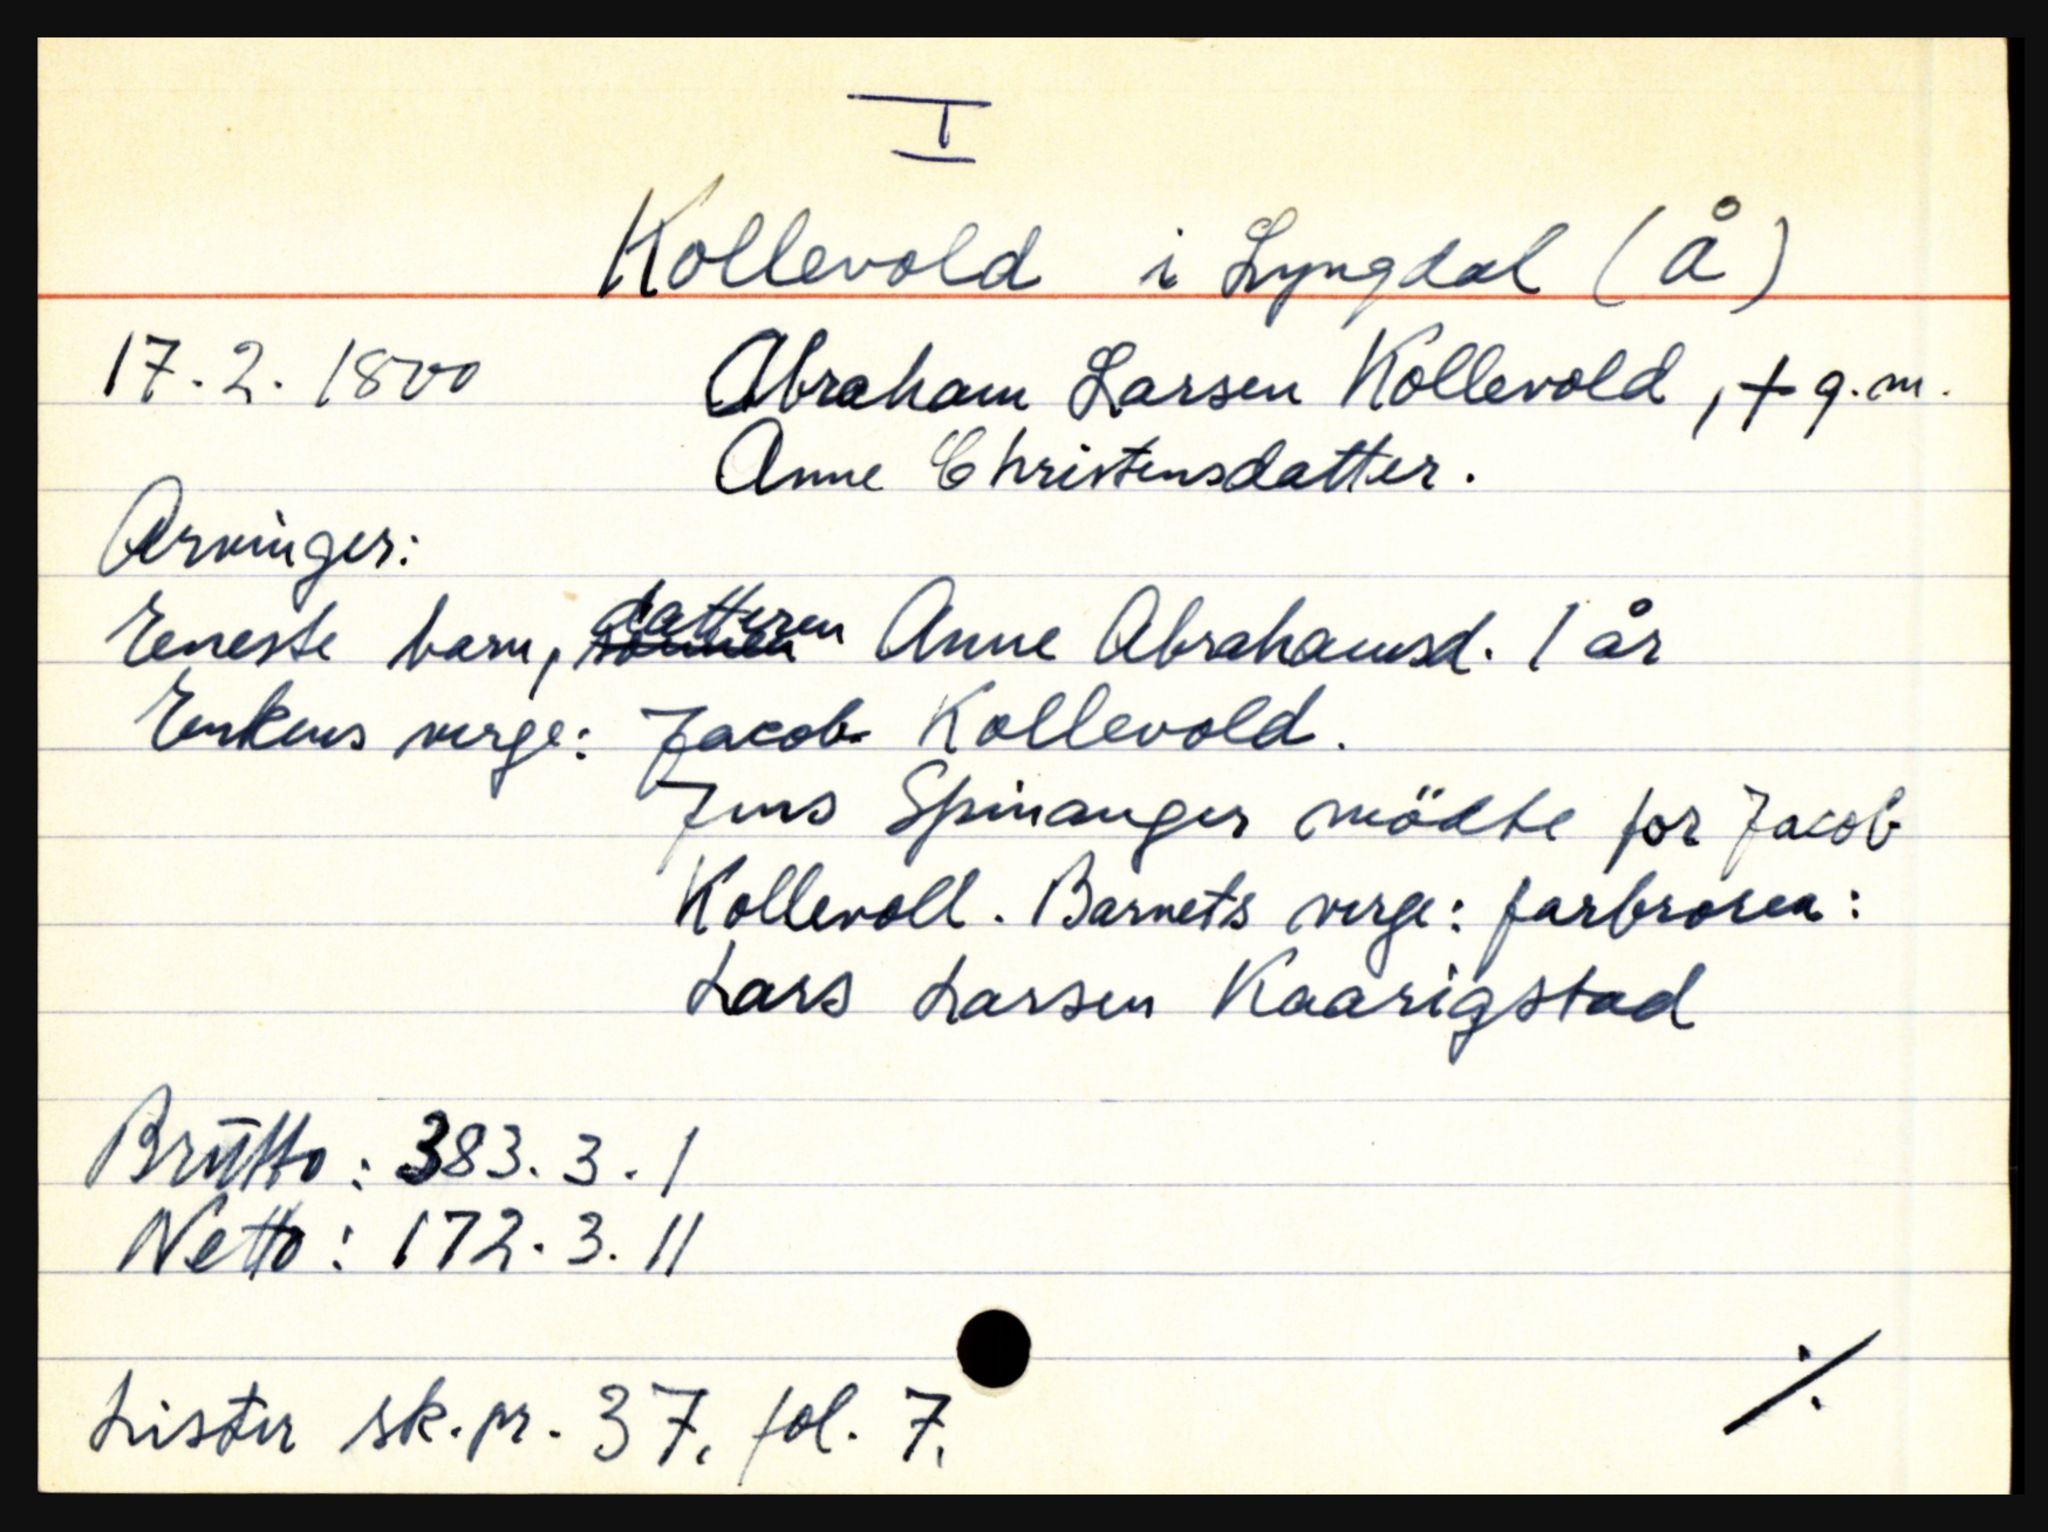 I
Kollevold i Lyngdal (Å)
17.2.1800 Abraham Larsen Kollevold, + g.m.
Anne Christensdatter.
Arvinger:
Eneste barn, datteren Anne Abrahamsd. 1 år
Enkens verge: Jacob Kollevold.
Jens Spinanger mödte for Jacob
Kollevoll. Barnets verge: farbroren:
Lars Larsen Kaarigstad
Brutto: 383.3.1
Netto: 172.3.11
Lister sk.pr. 37. fol. 7.
./.